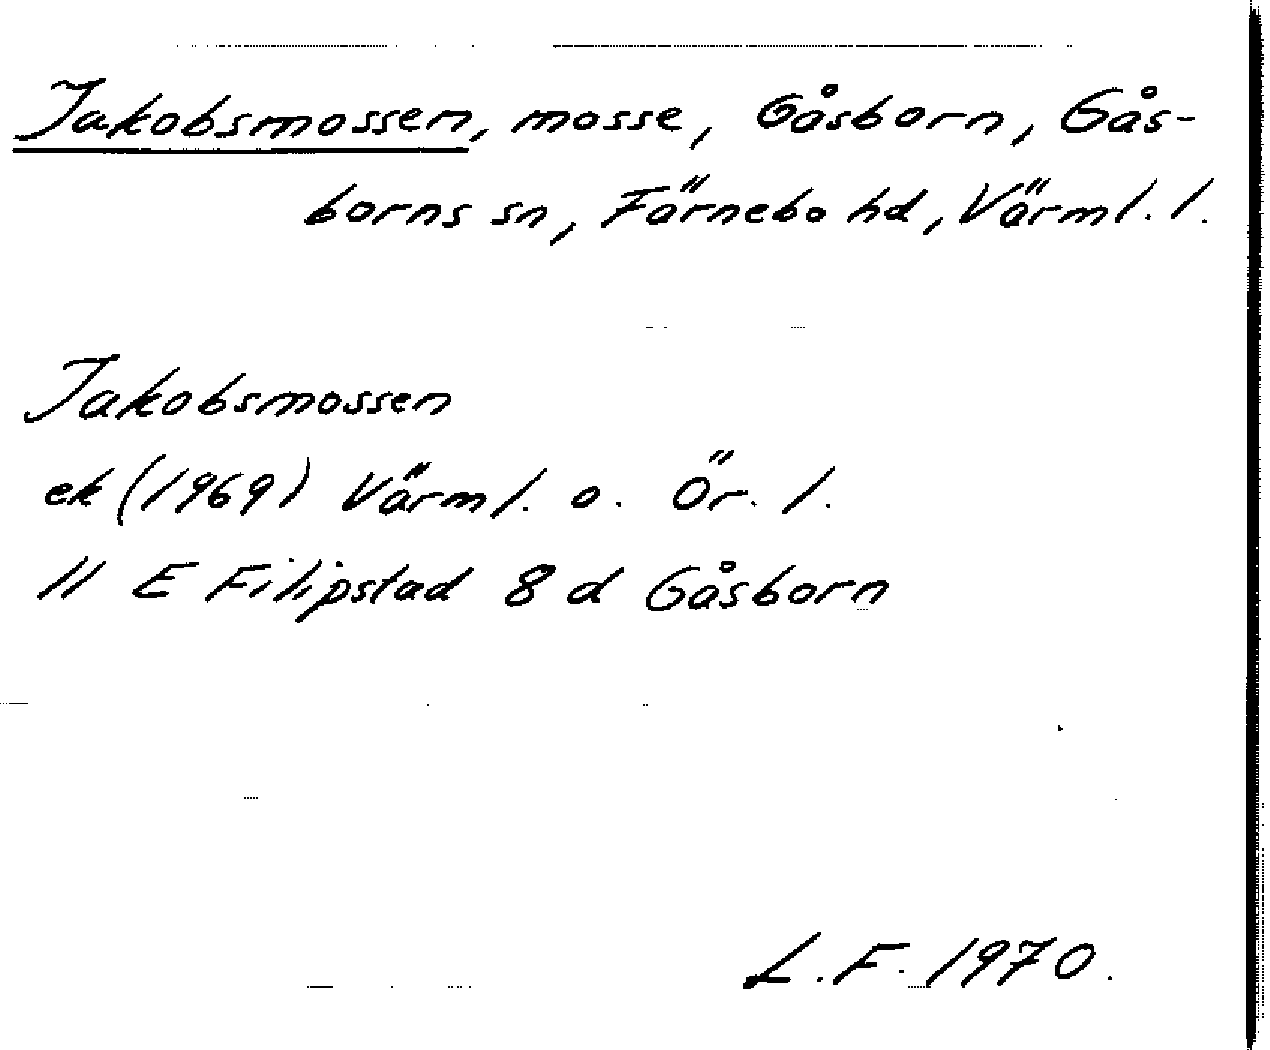 Jakobsmossen, mosse, Gåsborn, Gås-
borns sn, Färnebo hd, Värml. l.
Jakobsmossen
ek (1969) Värml. o. Ör. l.
11 E Filipstad 8 d Gåsborn
L.F. 1970.